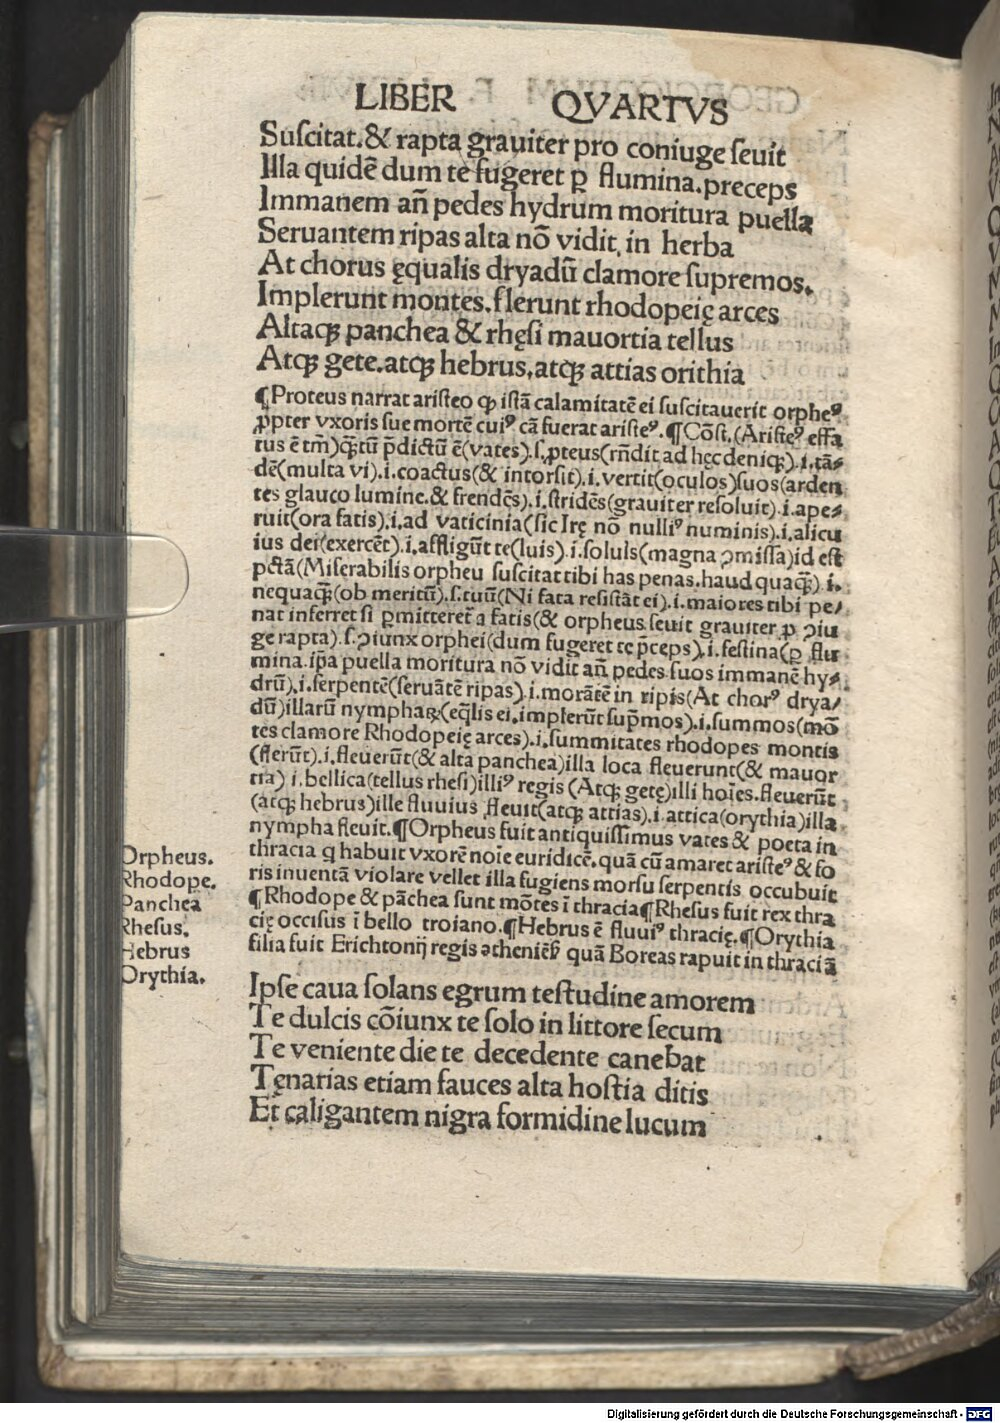 LIBER QVARTVS
Suſcitat.& rapta grauiter pro coniuge ſeuit
Illa quidē dum te fugeret ꝑ flumina.preceps
Immanem añ pedes hydrum moritura puella
Seruantem ripas alta nō vidit, in herba
At chorus ęqualis dryadū clamore ſupremos.
Implerunt montes.flerunt rhodopeię arces
Altaqꝫ panchea & rhęſi mauortia tellus
Atqꝫ gete.atqꝫ hebrus,atqꝫ attias orithia
¶Proteus narrat ariſteo ꝙ iſtā calamitatē ei ſuſcitauerit orpheꝰ
ꝓpter vxoris ſue mortē cuiꝰ cā fuerat ariſteꝰ.¶Cōſt,(Ariſteꝰ effa
tus ē tm̄)qꝫtū p̄dictū ē(vates).ſ.ꝓteus(rñdit ad hęc deniqꝫ).i.tā⸗
dē(multa vi).i.coactus(& intorſit).i.vertit(oculos)ſuos(arden
tes glauco lumine.& frendēs).i.ſtridēs(grauiter reſoluit).i.ape⸗
ruit(ora fatis).i.ad vaticinia(ſic Irę nō nulliꝰ numinis).i.alicu
ius dei(exercēt).i.affligūt te(luis).i.ſoluis(magna ꝯmiſſa)id eſt
pctā(Miſerabilis orpheu ſuſcitat tibi has penas.haud quaqꝫ̄).i.
nequaqꝫ̄(ob meritū).ſ.tuū(Ni fata reſiſtāt ei).i.maiores tibi pe/
nas inferret ſi ꝑmitteret̄ a fatis(& orpheus ſeuit grauiter ꝓ ꝯiu
ge rapta).ſ.ꝯiunx orphei(dum fugeret te p̄ceps).i.feſtina(ꝑ flu
mina.ip̄a puella moritura nō vidit añ pedes ſuos immanē hy⸗
drū).i.ſerpentē(ſeruātē ripas).i.morātē in ripis(At chorꝰ drya/
dū)illarū nymphaꝝ(eq̄lis ei.implerūt ſup̄mos).i.ſummos(mō
tes clamore Rhodopeię arces).i.ſummitates rhodopes montis
(flerūt).i.fleuerūt(& alta panchea)illa loca fleuerunt(& mauor
tia) i.bellica(tellus rheſi)illiꝰ regis (Atqꝫ getę)illi hoīes.fleuerūt
(atqꝫ hebrus)ille fluuius fleuit(atqꝫ attias).i.attica(orythia)illa
nympha fleuit.¶Orpheus fuit antiquiſſimus vates & poeta in
thracia q habuit vxorē noīe euridicē.quā cū amaret ariſteꝰ & fo
ris inuentā violare vellet illa fugiens morſu ſerpentis occubuit
¶Rhodope & pāchea ſunt mōtes ī thracia¶Rheſus fuit rex thra
cię occiſus ī bello troiano.¶Hebrus ē fluuiꝰ thracię.¶Orythia
filia fuit Erichtonij regis quā Boreas rapuit in thraciā
Orpheus.
Rhodope.
Panchea
Rheſus.
Hebrus
Orythia.
Ipſe caua ſolans egrum teſtudine amorem
Te dulcis cōiunx te ſolo in littore ſecum
Te veniente die te decedente canebat
Tęnarias etiam fauces alta hoſtia ditis
Et caligantem nigra formidine lucum
Digitalisierung gefördert durch die Deutsche Forschungsgemeinschaft - DFG